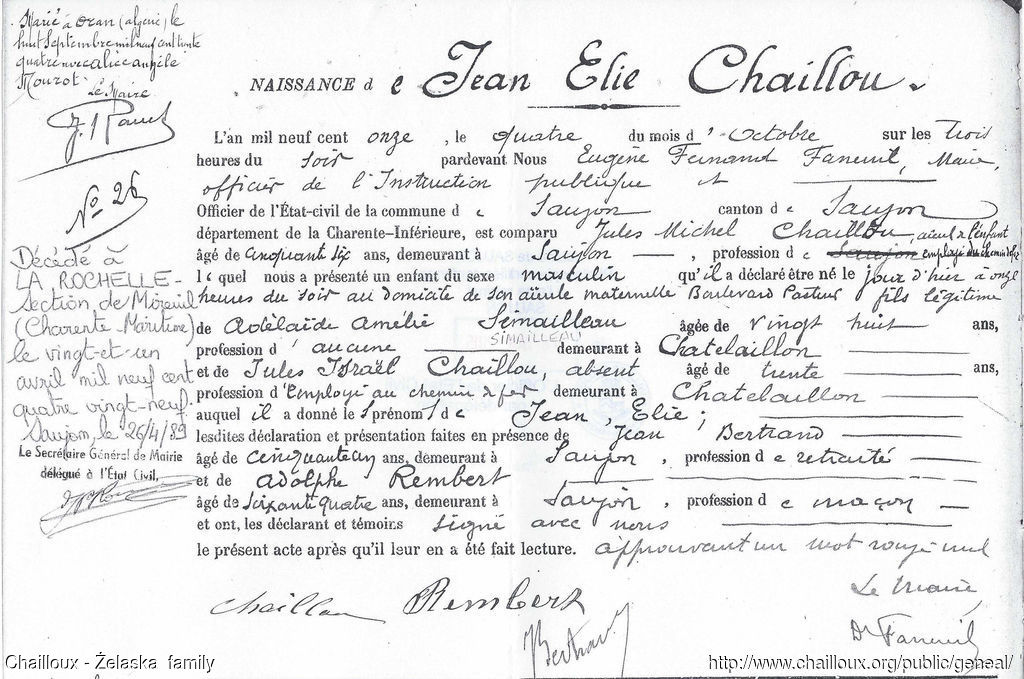 Marié à Oran (algerie) le
huit Septembre mil neuf cent trente
quatre avec alice angèle
Mourot.
Le Maire
No 26
Décédé à
LA ROCHELLE -
section de Mireuil
(Charente-Maritime)
le vingt-et-un
avril mil neuf cent
quatre vingt-neuf.
Saujon, le 26/4/89
Le Secrétaire Général de Mairie
délégué à l'État Civil,
NAISSANCE de Jean Elie Chaillou.
L'an mil neuf cent onze, le quatre du mois d'Octobre sur les trois
heures du soir pardevant Nous Eugène Fernand Faneuil, Maire,
officier de l'Instruction publique et
Officier de l'État-civil de la commune de Saujon canton de Saujon
département de la Charente-Inférieure, est comparu Jules Michel Chaillou, aieul de l'enfant
âgé de cinquante six ans, demeurant à Saujon, profession d Saujon employé du chemin de fer
lequel nous a présenté un enfant du sexe masculin qu'il a déclaré être né le jour d'hier à onze
heures du soir au domicile de son aïeule maternelle Boulevard Pasteur fils légitime
de Adélaïde Amélie Simailleau âgée de vingt huit ans,
SIMAILLEAU
profession d'aucune demeurant à Chatelaillon
et de Jules Israël Chaillou, absent âgé de trente ans,
profession d'Employé au chemin de fer, demeurant à Chatelaillon
auquel il a donné les prénoms de Jean, Elie;
lesdites déclaration et présentation faites en présence de Jean Bertrand
âgé de cinquante un ans, demeurant à Saujon, profession de retraité
et de Adolphe Rembert
âgé de Soixante quatre ans, demeurant à Saujon, profession de maçon
et ont, les déclarant et témoins signé avec nous
le présent acte après qu'il leur en a été fait lecture. approuvant un mot rayé nul
Chaillou Rembert
Bertrand
Le Maire,
Dr Faneuil
Chailloux - Żelaska family
http://www.chailloux.org/public/geneal/